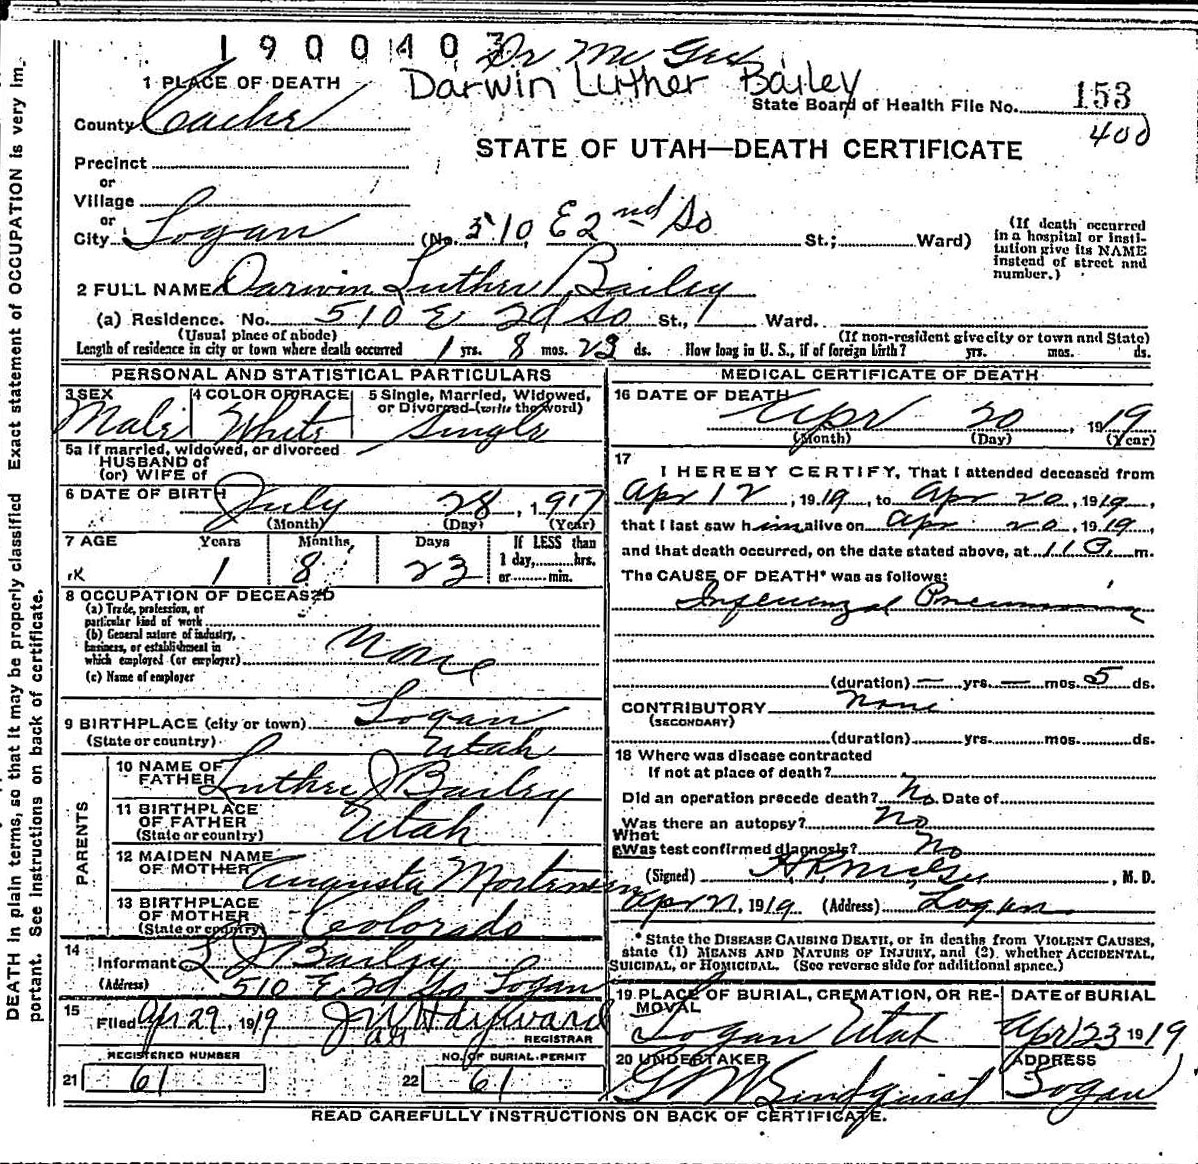 1 9 0 0 4 0 3 Dr McGee
Darwin Luther Bailey
1 PLACE OF DEATH
State Board of Health File No. 153
County Cache
400
STATE OF UTAH—DEATH CERTIFICATE
Precinct
or
Village
or
City Logan (No. 510 E 2nd So St.; Ward)
(If death occurred in a hospital or insti-
tution give its NAME
instead of street and
number.)
2 FULL NAME Darwin Luther Bailey
(a) Residence. No. 510 E 2d So St., Ward.
(Usual place of abode) (If non-resident give city or town and State)
Length of residence in city or town where death occurred 1 yrs. 8 mos. 23 ds. How long in U. S., if of foreign birth? yrs. mos. ds.
PERSONAL AND STATISTICAL PARTICULARS
3 SEX 4 COLOR OR RACE 5 Single, Married, Widowed,
or Divorced (write the word)
Male White Single
5a If married, widowed, or divorced
HUSBAND of
(or) WIFE of
6 DATE OF BIRTH July 28, 1917
(Month) (Day) (Year)
7 AGE Years Months Days If LESS than
1 day,......hrs.
or......min.
1 8 23
8 OCCUPATION OF DECEASED
(a) Trade, profession, or
particular kind of work
(b) General nature of industry,
business, or establishment in
which employed (or employer) None
(c) Name of employer
9 BIRTHPLACE (city or town) Logan
(State or country) Utah
PARENTS
10 NAME OF
FATHER Luther J Bailey
11 BIRTHPLACE
OF FATHER Utah
(State or country)
12 MAIDEN NAME
OF MOTHER Augusta Mortensen
13 BIRTHPLACE
OF MOTHER Colorado
(State or country)
14
Informant L J Bailey
(Address) 510 E 2d So Logan
15
Filed Apr 29, 1919 Hayward
REGISTRAR
REGISTERED NUMBER NO. OF BURIAL PERMIT
21 61 22 61
MEDICAL CERTIFICATE OF DEATH
16 DATE OF DEATH
Apr 20, 1919
(Month) (Day) (Year)
17
I HEREBY CERTIFY, That I attended deceased from
Apr 12, 1919, to Apr 20, 1919,
that I last saw him alive on Apr 20, 1919,
and that death occurred, on the date stated above, at 11 m.
The CAUSE OF DEATH* was as follows:
Influenzal Pneumonia
(duration) — yrs. — mos. 5 ds.
CONTRIBUTORY none
(SECONDARY)
(duration) yrs. mos. ds.
18 Where was disease contracted
If not at place of death?
Did an operation precede death? No Date of
Was there an autopsy? No
What
Was test confirmed diagnosis? No
(Signed) McGee, M. D.
Apr, 1919 (Address) Logan
* State the DISEASE CAUSING DEATH, or in deaths from VIOLENT CAUSES,
state (1) MEANS AND NATURE OF INJURY, and (2) whether ACCIDENTAL,
SUICIDAL, or HOMICIDAL. (See reverse side for additional space.)
19 PLACE OF BURIAL, CREMATION, OR RE-
MOVAL DATE of BURIAL
Logan Utah Apr 23 1919
20 UNDERTAKER ADDRESS
Lindquist Logan
READ CAREFULLY INSTRUCTIONS ON BACK OF CERTIFICATE.
DEATH in plain terms, so that it may be properly classified Exact statement of OCCUPATION is very im-
portant. See instructions on back of certificate.